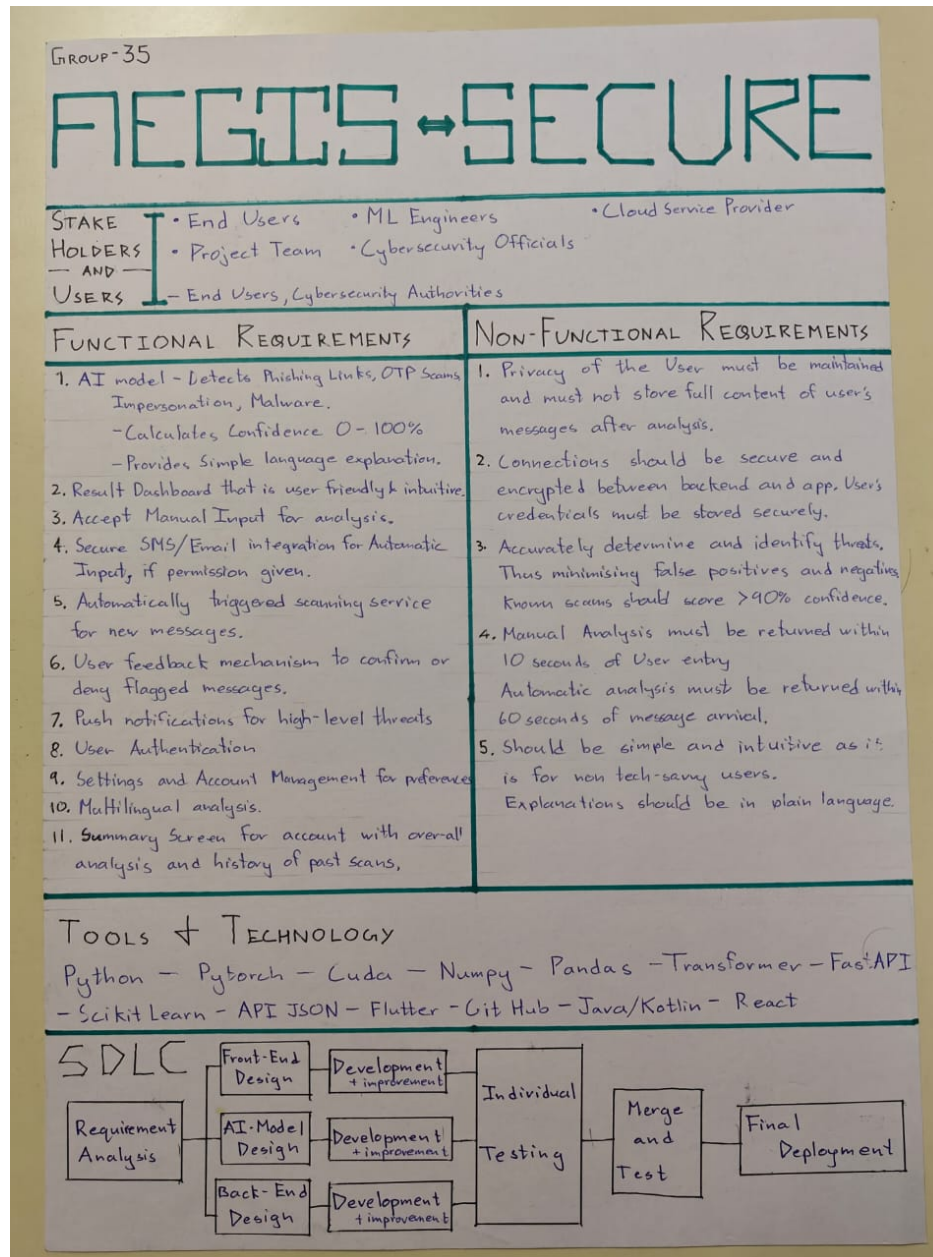 GROUP-35
AEGIS ⇔ SECURE
STAKE HOLDERS
— AND —
USERS
• End Users • ML Engineers • Cloud Service Provider
• Project Team • Cybersecurity Officials
– End Users, Cybersecurity Authorities
FUNCTIONAL REQUIREMENTS
1. AI model – Detects Phishing Links, OTP Scams,
Impersonation, Malware.
– Calculates Confidence 0 – 100%
– Provides Simple language explanation.
2. Result Dashboard that is user friendly & intuitive.
3. Accept Manual Input for analysis.
4. Secure SMS/Email integration for Automatic
Input, if permission given.
5. Automatically triggered scanning service
for new messages.
6. User feedback mechanism to confirm or
deny flagged messages.
7. Push notifications for high-level threats
8. User Authentication
9. Settings and Account Management for preferences
10. Multilingual analysis.
11. Summary Screen for account with over-all
analysis and history of past scans.
NON-FUNCTIONAL REQUIREMENTS
1. Privacy of the User must be maintained
and must not store full content of user's
messages after analysis.
2. Connections should be secure and
encrypted between backend and app. User's
credentials must be stored securely.
3. Accurately determine and identify threats.
Thus minimising false positives and negatives
Known scams should score >90% confidence.
4. Manual Analysis must be returned within
10 seconds of User entry
Automatic analysis must be returned within
60 seconds of message arrival.
5. Should be simple and intuitive as it
is for non tech-savvy users.
Explanations should be in plain language.
TOOLS & TECHNOLOGY
Python – Pytorch – Cuda – Numpy – Pandas – Transformer – FastAPI
– Scikit Learn – API JSON – Flutter – Git Hub – Java/Kotlin – React
SDLC
Requirement
Analysis
Front-End
Design
Development
+ improvement
AI-Model
Design
Development
+ improvement
Back-End
Design
Development
+ improvement
Individual
Testing
Merge
and
Test
Final
Deployment